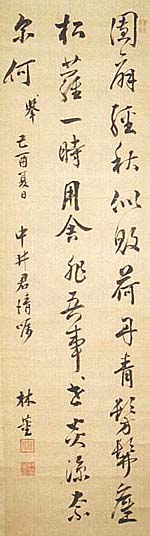 團扇經秋似敗荷丹青髣髴舊
松蘿一時用舍非吾事世炎涼奈
尔何 舉 己酉夏日 中井君請嘱 林董